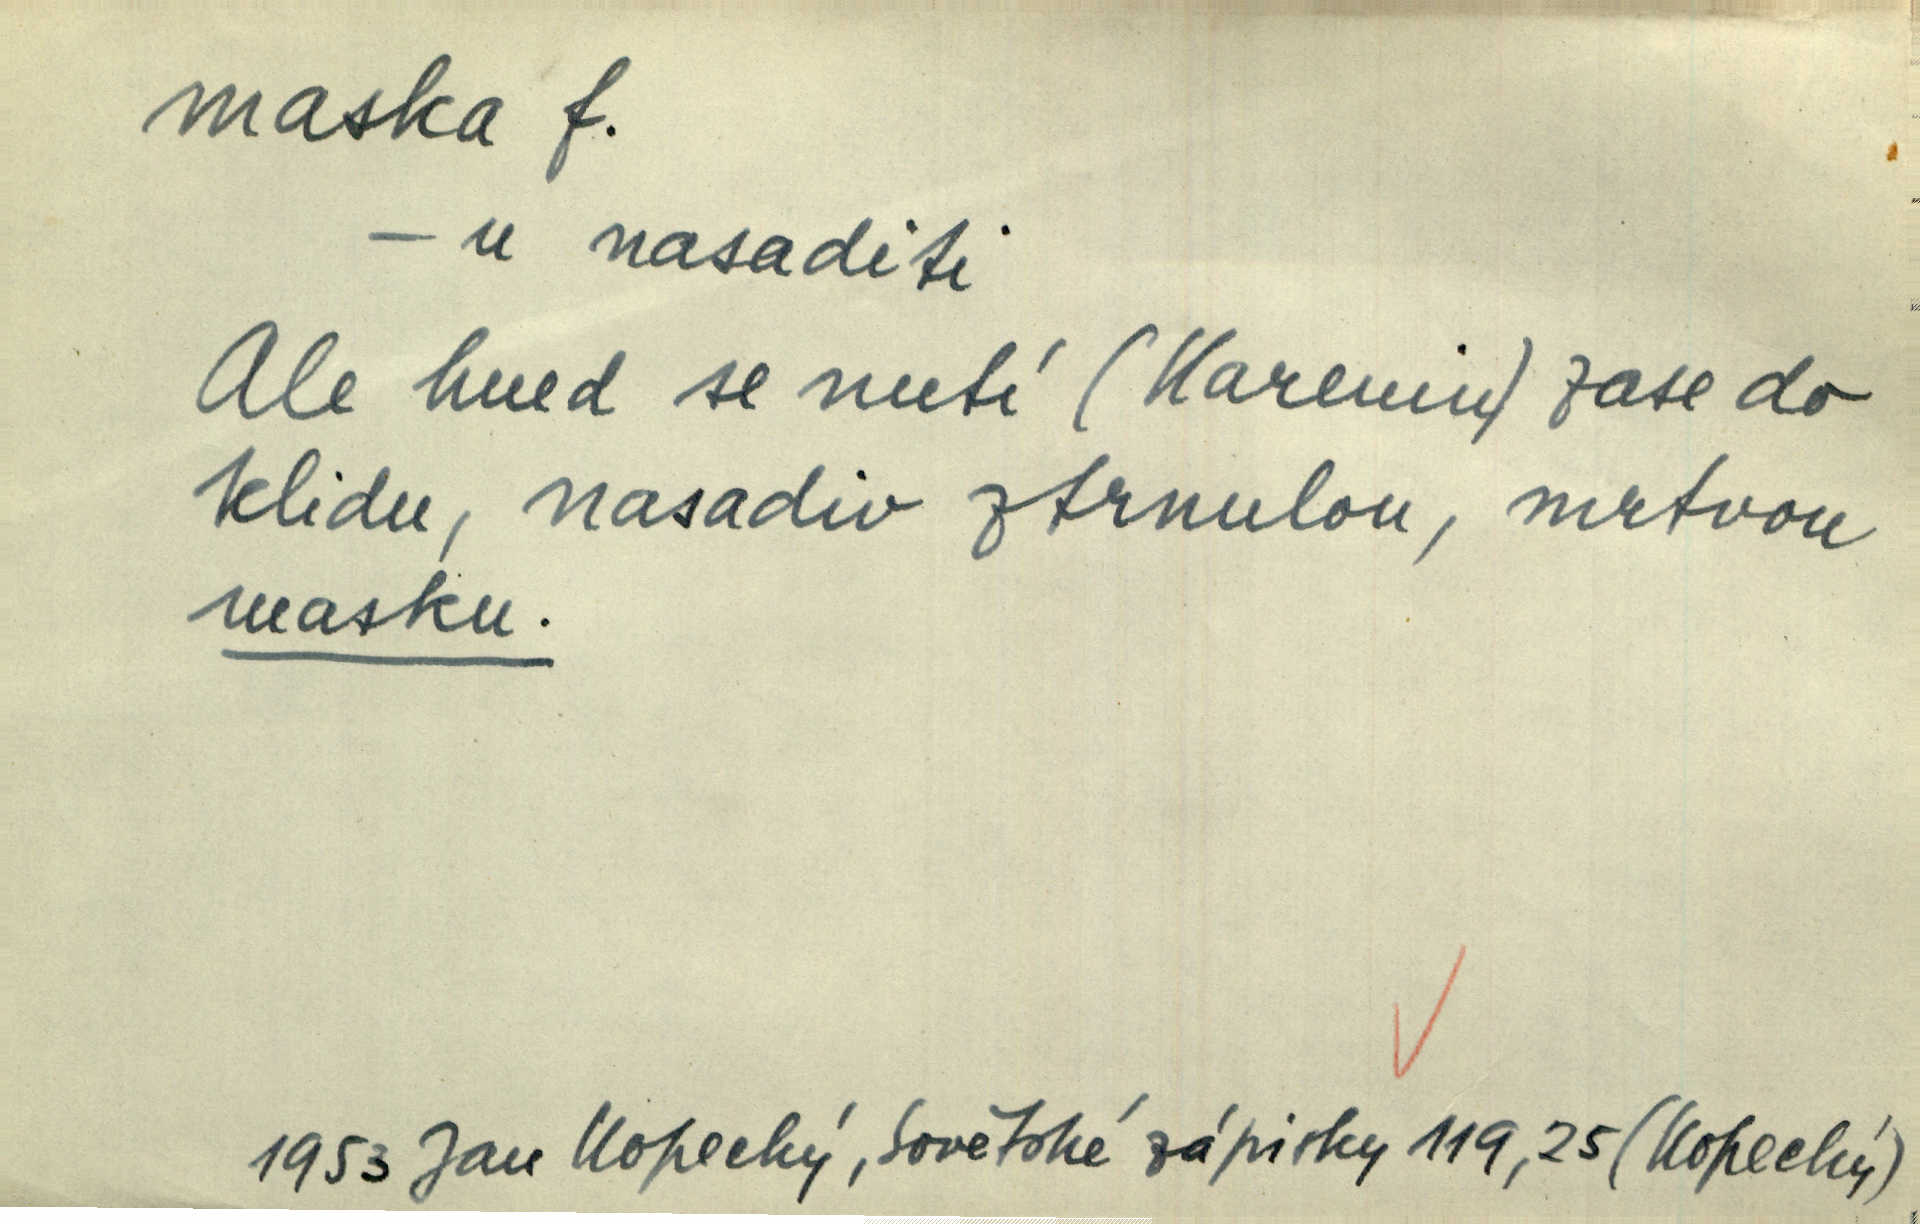 maska f.
– u nasaditi
Ale hned se nutí (Karenin) zase do
klidu, nasadiv ztrnulou, mrtvou
masku.
1953 Jan Kopecký, Sovětské zápisky 119, 25 (Kopecký)